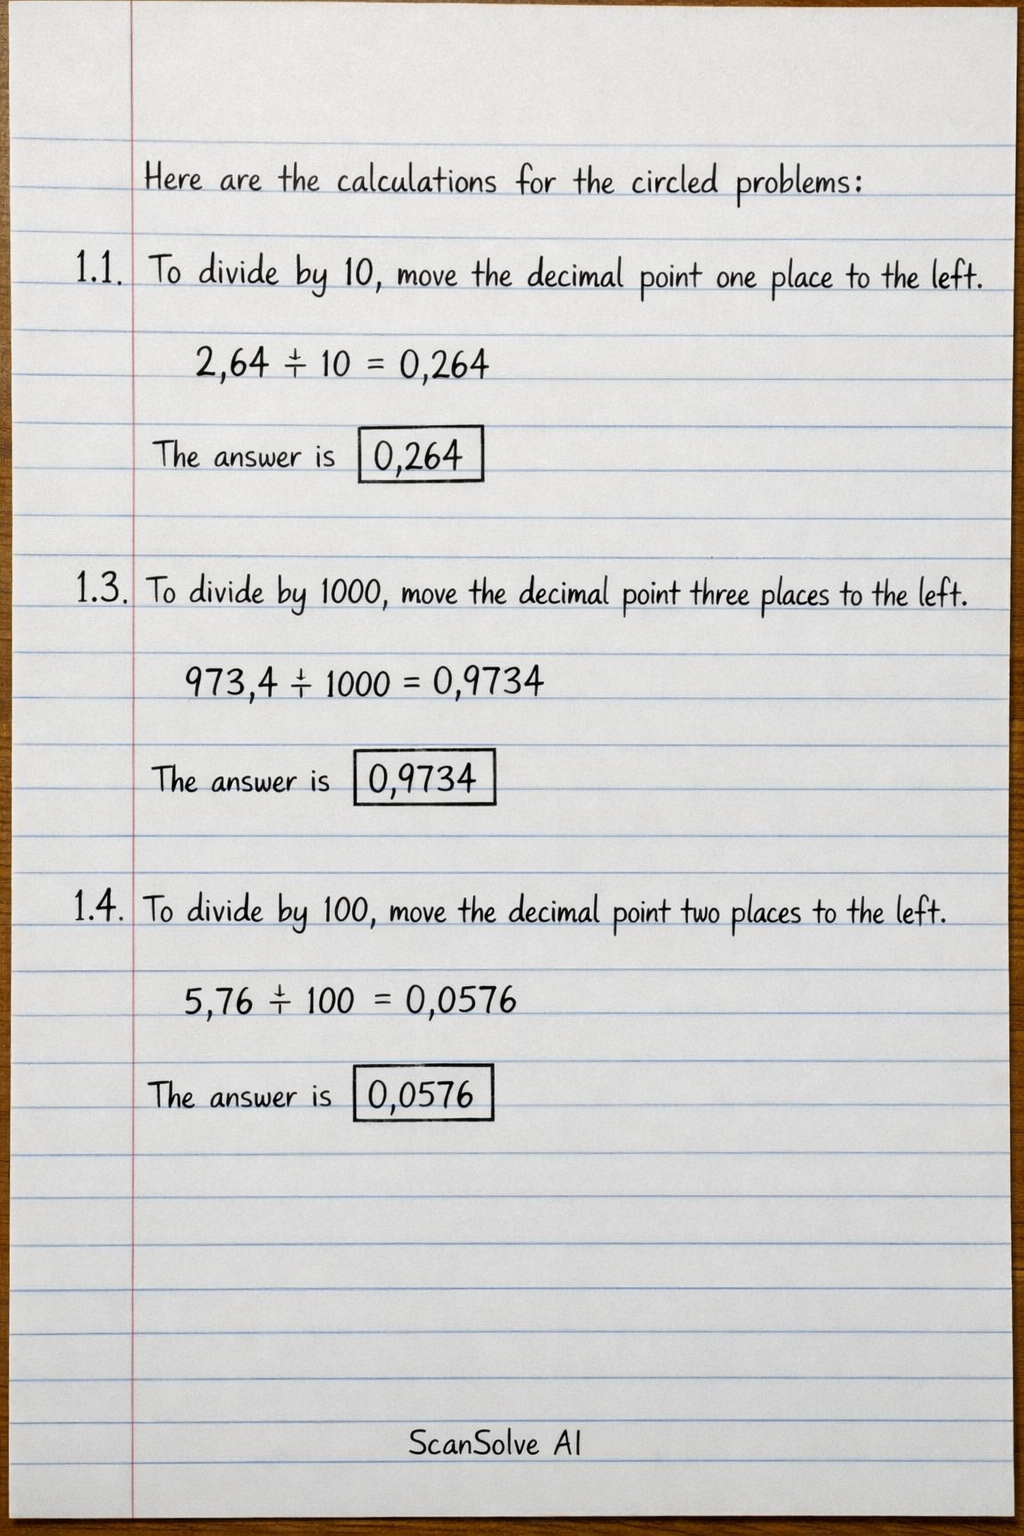 Here are the calculations for the circled problems:
1.1. To divide by 10, move the decimal point one place to the left.
2,64 ÷ 10 = 0,264
The answer is 0,264
1.3. To divide by 1000, move the decimal point three places to the left.
973,4 ÷ 1000 = 0,9734
The answer is 0,9734
1.4. To divide by 100, move the decimal point two places to the left.
5,76 ÷ 100 = 0,0576
The answer is 0,0576
ScanSolve AI